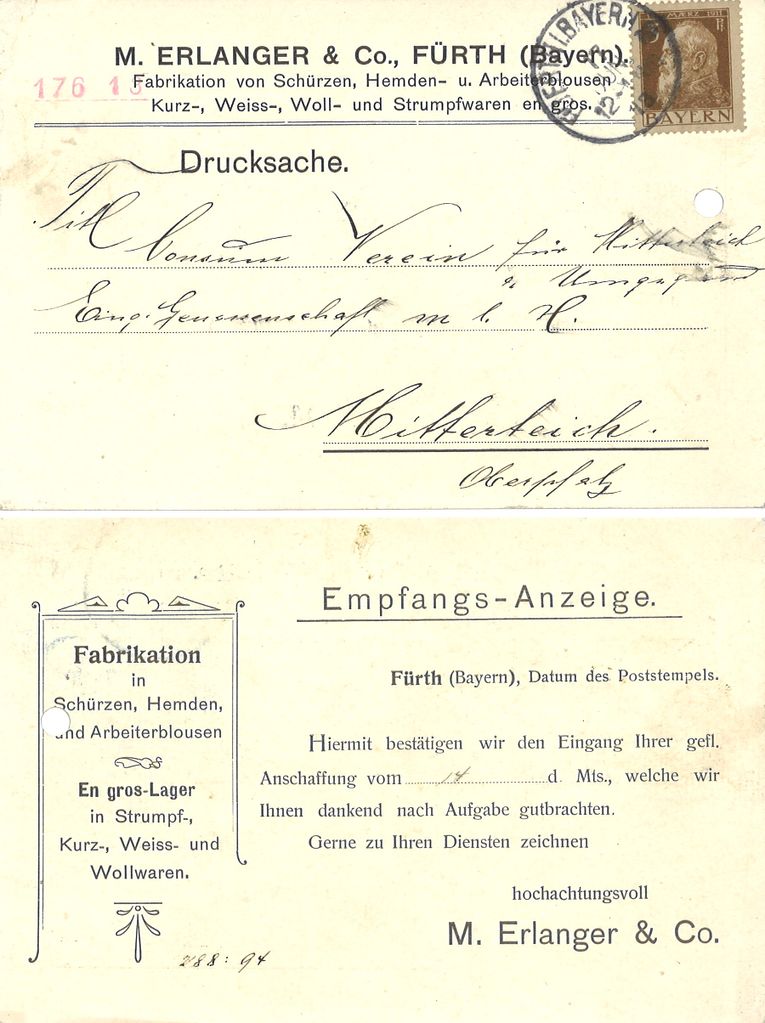 M. ERLANGER & Co., FÜRTH (Bayern).
Fabrikation von Schürzen, Hemden- u. Arbeiterblousen
176 13
Kurz-, Weiss-, Woll- und Strumpfwaren en gros.
MÄRZ 1911
BAYERN
Drucksache.
Titl
Consum Verein für Mitterteich
u Umgegend
Eing. Genossenschaft m b. H.
Mitterteich.
Oberpfalz
Empfangs-Anzeige.
Fürth (Bayern), Datum des Poststempels.
Hiermit bestätigen wir den Eingang Ihrer gefl.
Anschaffung vom 14 d. Mts., welche wir
Ihnen dankend nach Aufgabe gutbrachten.
Gerne zu Ihren Diensten zeichnen
hochachtungsvoll
M. Erlanger & Co.
Fabrikation
in
Schürzen, Hemden,
und Arbeiterblousen
En gros-Lager
in Strumpf-,
Kurz-, Weiss- und
Wollwaren.
288: 94